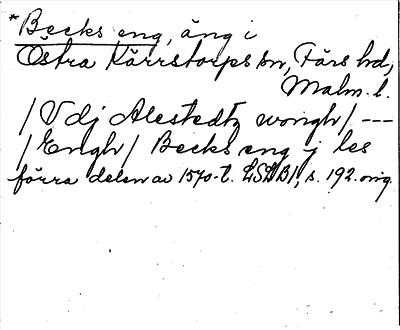 *Becks eng, äng i
Östra Kärrstorps sn, Färs hd,
Malm. l.
/Vdj Alestedtz wongh/ ---
/Engh/ Becks eng j les
förra delen av 1570-t. LSDB1, s. 192. orig.